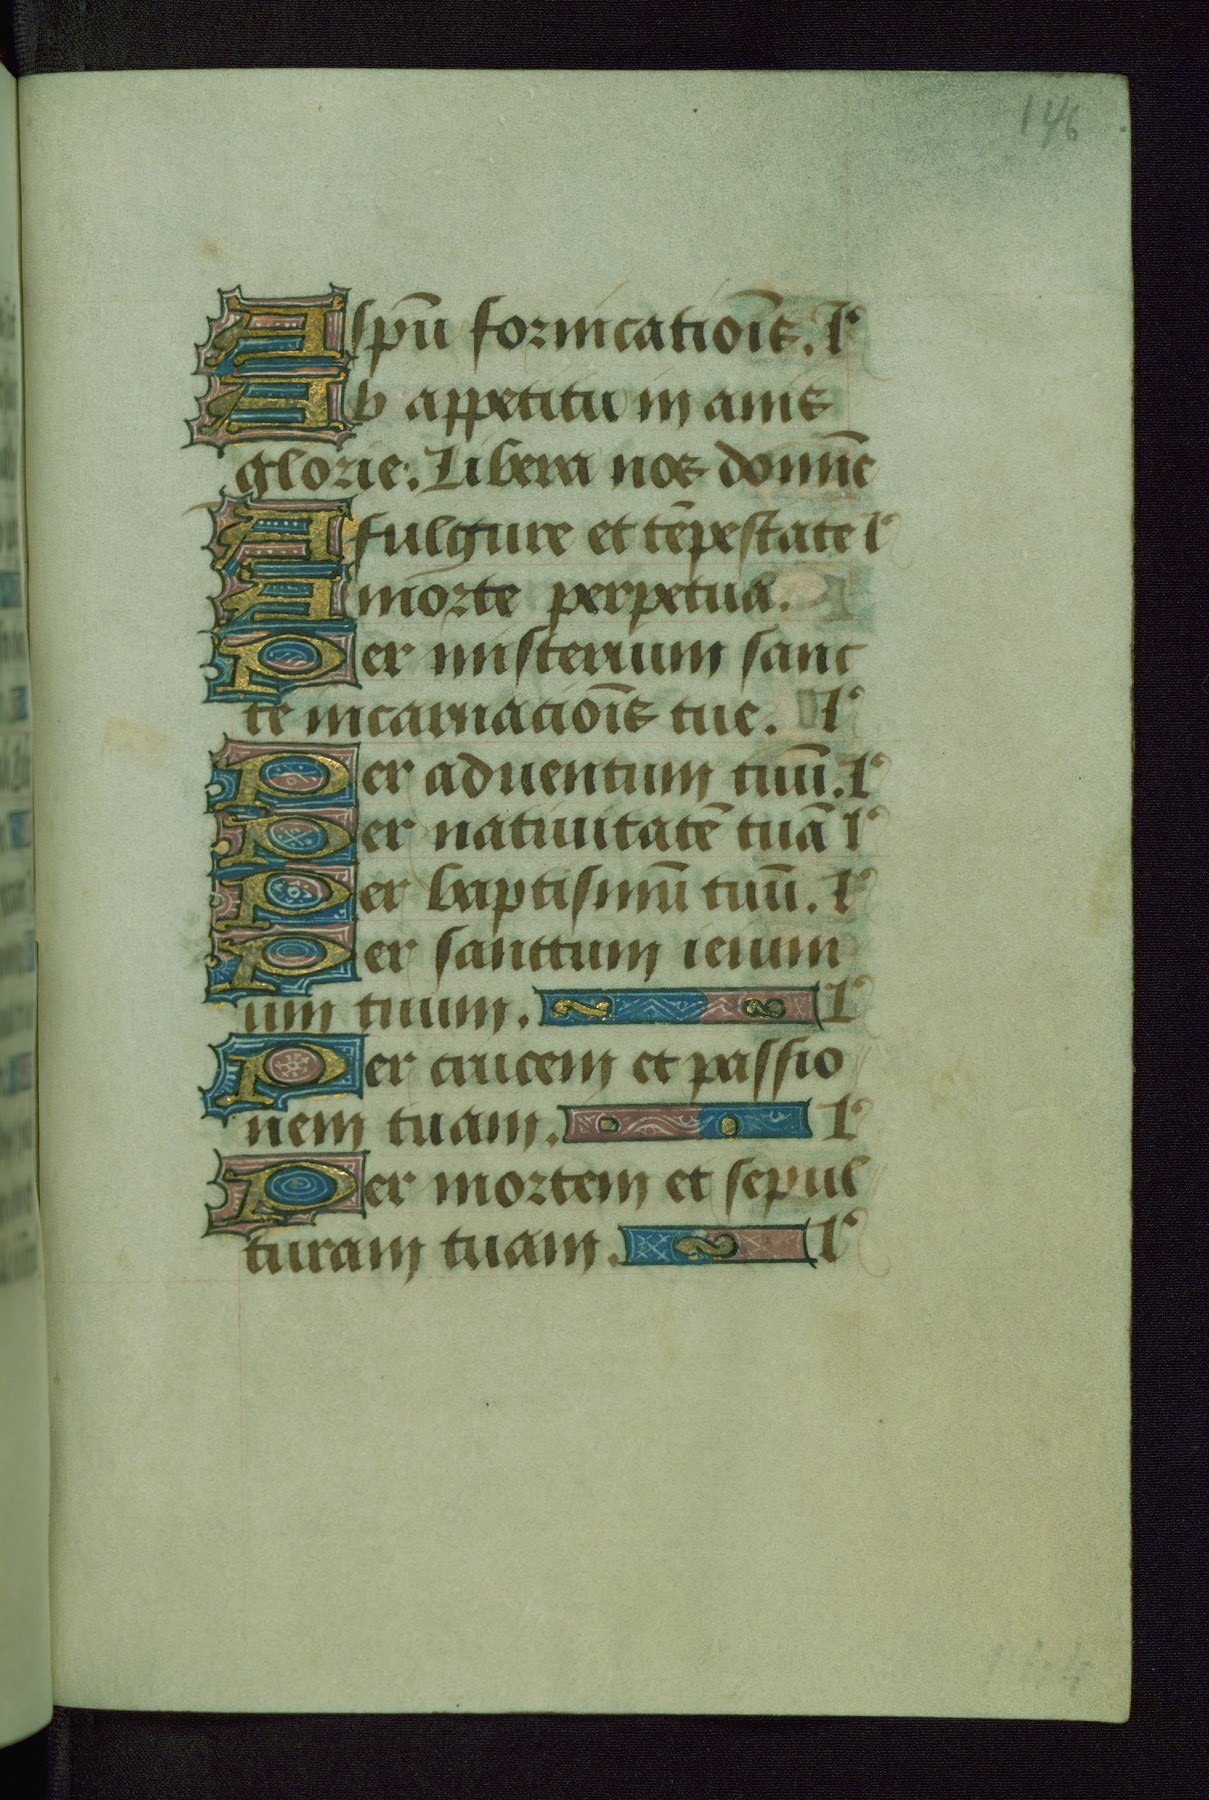 146
A spū fornicatiōis. lꝰ
Ab appetitu in anis
glorie. Libera nos domīe
A fulgure et tēpestate lꝰ
A morte perpetua. lꝰ
Per misterium sanc
te incarnaciōis tue. lꝰ
Per aduentum tuū. lꝰ
Per natiuitatē tuā lꝰ
Per baptismū tuū. lꝰ
Per sanctum ieiun
um tuum. lꝰ
Per crucem et passio
nem tuam. lꝰ
Per mortem et sepul
turam tuam. lꝰ